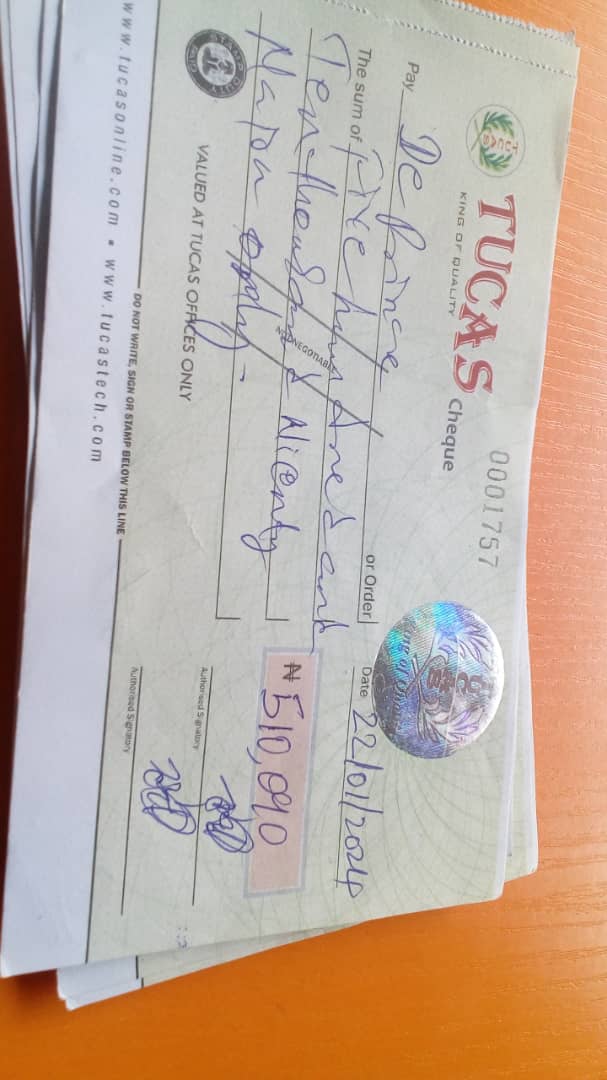 TUCAS Cheque
KING OF QUALITY
0001757
Pay De Prince or Order
Date 22/01/2024
The sum of Five hundred and
Ten thousand & Ninety
Naira only.
₦ 510,090
NOT NEGOTIABLE
STAMP DUTY
VALUED AT TUCAS OFFICES ONLY
Authorised Signatory
Authorised Signatory
DO NOT WRITE, SIGN OR STAMP BELOW THIS LINE
www.tucasonline.com • www.tucastech.com